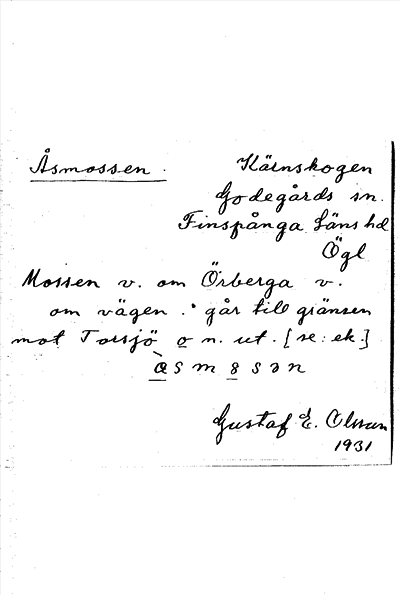 Åsmossen. Kärnskogen
Godegårds sn.
Finspånga läns hd
Ögl
Mossen v. om Örberga v.
om vägen. går till gränsen
mot Torsjö o n. ut. [se: ek.]
Gustaf E. Olsson
1931